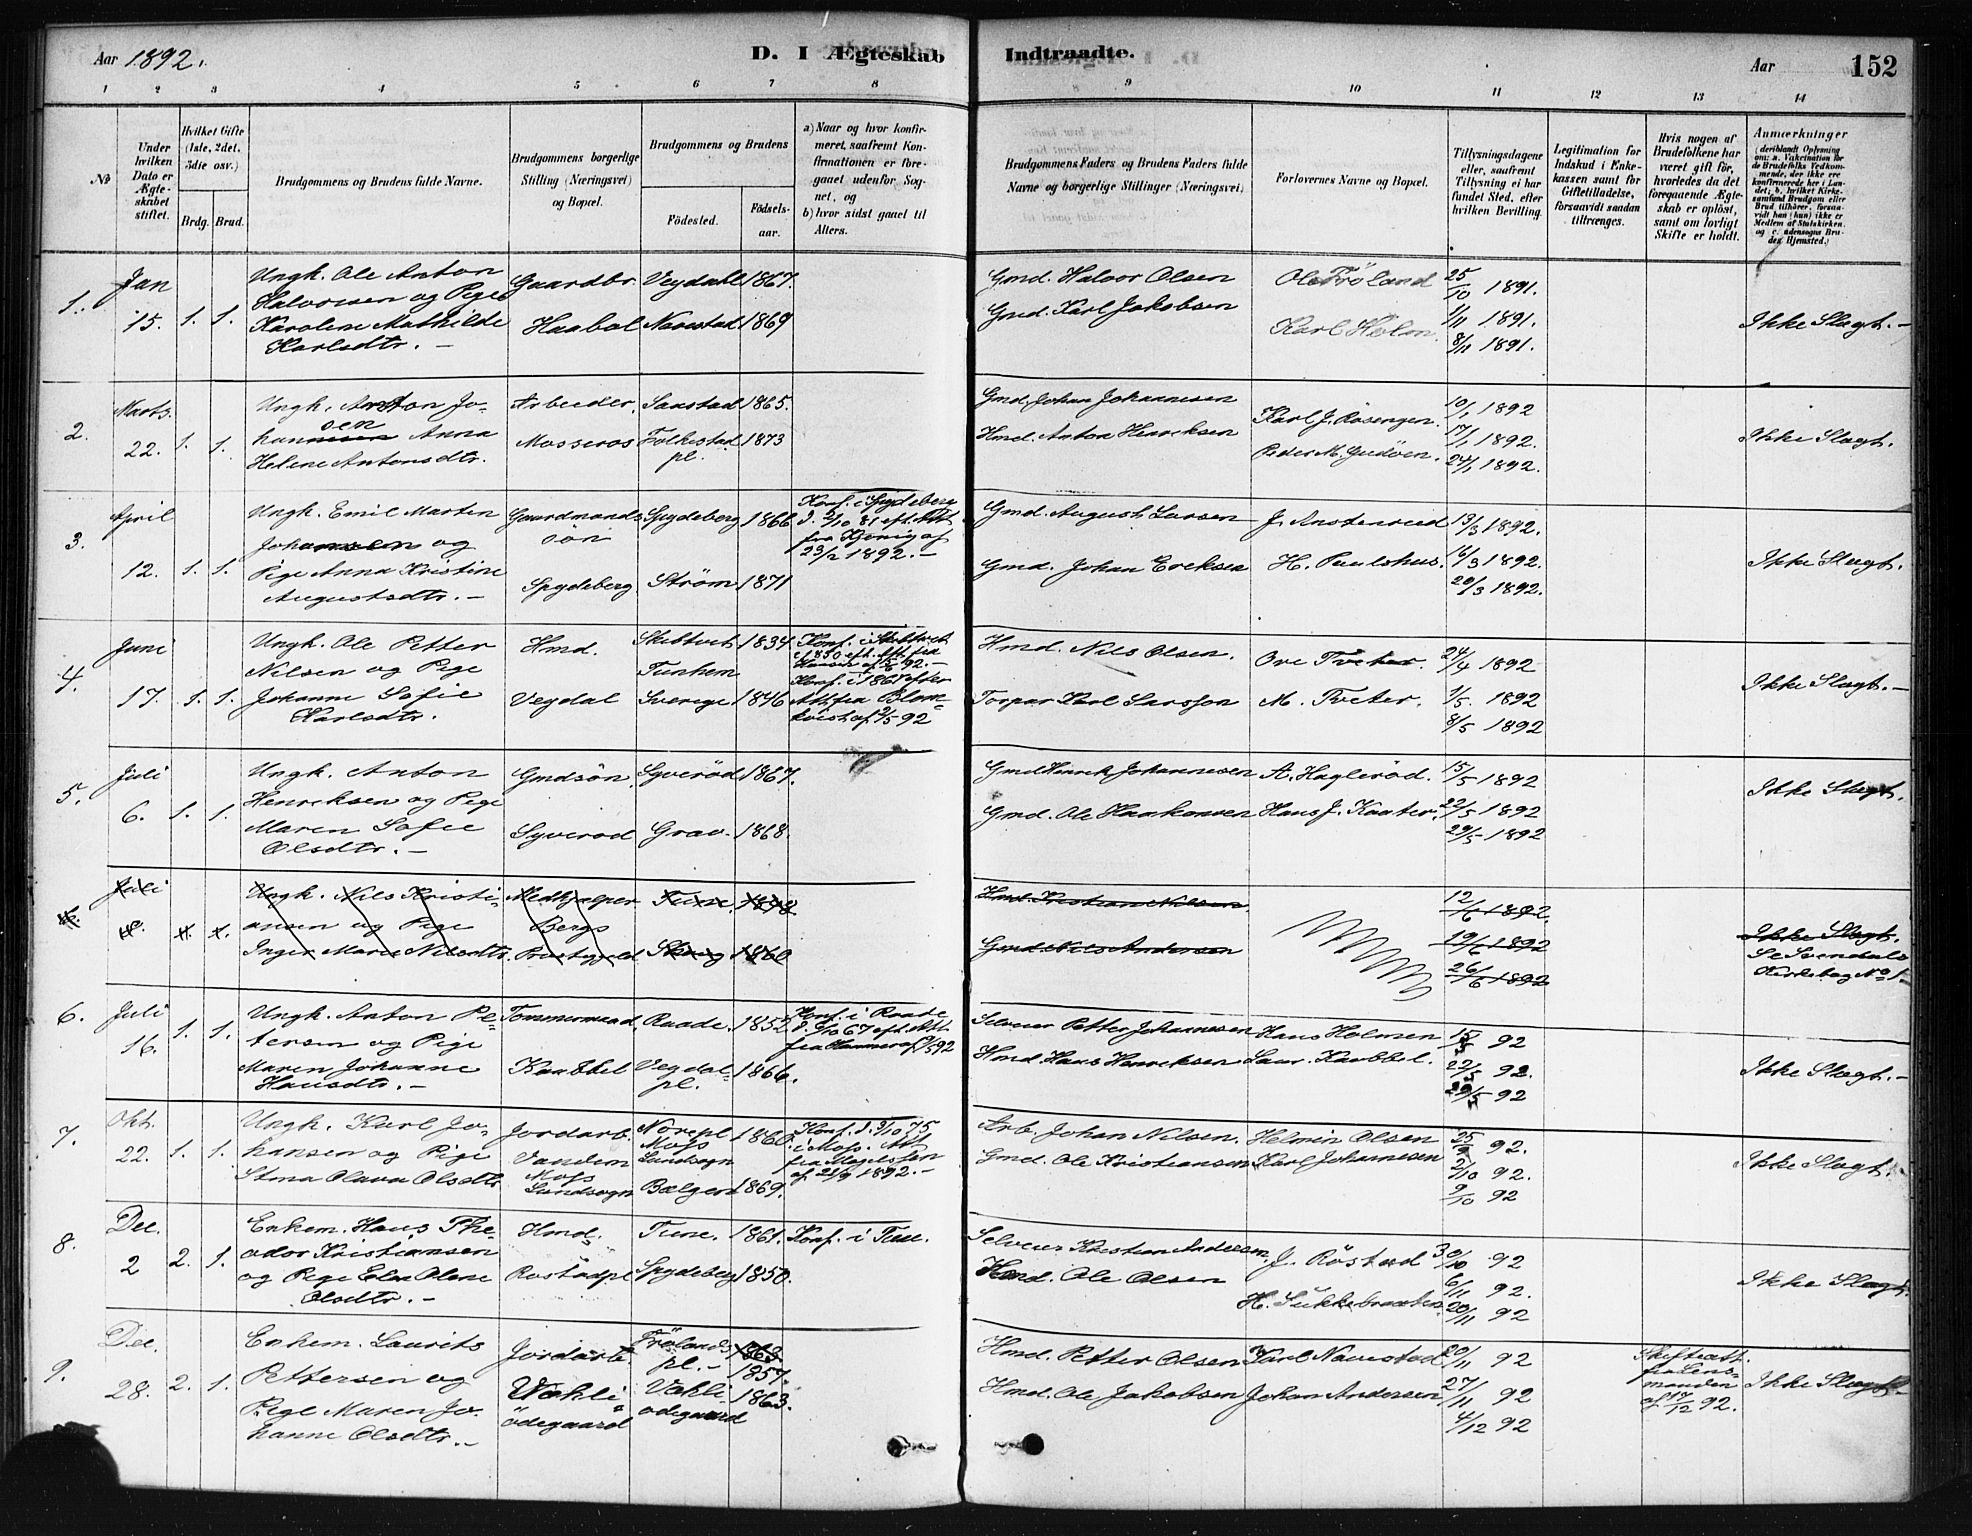 Aar 1892.
D. I Ægteskab
Indtraadte.
Aar
152
1 2 3 4 5 6 7 8
9 10 11 12 13 14
No
Under hvilken Dato er Ægteskabet stiftet.
Hvilket Gifte (1ste, 2det, 3die osv.)
Brdg. Brud.
Brudgommens og Brudens fulde Navne.
Brudgommens borgerlige Stilling (Næringsvei) og Bopæl.
Brudgommens og Brudens
Födested.
Födselsaar.
a) Naar og hvor konfirmeret, saafremt Konfirmationen er foregaaet udenfor Sognet, og
b) hvor sidst gaaet til Alters.
Brudgommens Faders og Brudens Faders fulde Navne og borgerlige Stillinger (Næringsvei)
Forlovernes Navne og Bopæl.
Tillysningsdagene eller, saafremt Tillysning ei har fundet Sted, efter hvilken Bevilling.
Legitimation for Indskud i Enkekassen samt for Giftetilladelse, forsaavidt saadan tiltrænges.
Hvis nogen af Brudefolkene har været gift för, hvorledes da det foregaaende Ægteskab er oplöst, samt om lovligt Skifte er holdt.
Anmærkninger
(deriblandt Oplysning om: a. Vakcination for de Brudefolks Vedkommende, der ikke ere konfirmerede her i Landet; b. hvilket Kirkesamfund Brudgom eller Brud tilhörer, forsaavidt han (hun) ikke er Medlem af Statskirken, og c. udensogns Brudes Hjemsted.)
1. Jan 15. 1. 1.
Ungk. Ole Anton
Halvorsen og Pige
Karoline Mathilde
Karlsdtr. —
Gaardbr. Haabøl
Vegdahl 1867.
Navestad 1869
Gmd. Halvor Olsen
Gmd. Karl Jakobsen
Ole Fröland
Karl Holm.
25/10 1891.
1/11 1891.
8/11 1891.
Ikke Slægt. —
2. Marts 22. 1. 1.
Ungk. Anton Jo-
hansen Anna
Helene Antonsdtr.
Arbeider, Mosseros
Saastad 1865.
Folkestad pl. 1873
Gmd. Johan Johannesen
Hmd. Anton Henriksen
Karl J. Rosengen.
Peder M. Gudöen.
10/1 1892
17/1 1892.
24/1 1892.
Ikke Slægt.
3. April 12. 1. 1.
Ungk. Emil Martin
Johansen og
Pige Anna Kristine
Augustsdtr. —
Gaardmands
sön
Spydeberg
Spydeberg 1866
Ström 1871
Konf. i Spydeberg
d. 2/10 81 eft. Att.
fra
23/2 1892. —
Gmd. August Larsen
Gmd. Johan Eriksen
J. Austenrud
H. Paulshus.
13/3 1892.
16/3 1892.
20/3 1892.
Ikke Slægt.
4. Juni 17. 1. 1.
Ungk. Ole Petter
Nilsen og Pige
Johanne Sofie
Karlsdtr.
Hmd.
Vegdal
Skibtvet 1834.
Tunhem
Sverige 1846
Konf. i Skibtvet
1850 eft. Att. fra
Konf. i 1861 efter
Att. fra Blom-
kvist af 2/5 92
Hmd. Nils Olsen.
Torpar Karl Larsson
Ove Tveter.
M. Tveter.
24/4 1892
1/5. 1892
8/5 1892
Ikke Slægt. —
5. Juli 6. 1. 1.
Ungk. Anton
Henriksen og Pige
Maren Sofie
Olsdtr. —
Gmdsön.
Syveröd
Syveröd 1867.
Grav. 1868.
Gmd Henrik Johannesen
Gmd. Ole Haakonsen
A. Haglerød.
Hans J. Kaater.
15/5 1892
22/5 1892
29/5 1892
Ikke Slægt.
Juli
Ungk. Nils Kristi-
ansen og Pige
Inger Marie Nilsdtr.
Medhjælper
Bergs
Prestgjeld
Tune.
1860
Hmd. Kristian Nilsen.
Gmd. Nils Andersen
12/6 1892.
19/6 1892
26/6 1892
Ikke Slægt.
Se Svendals
Kirkebog No 1
6. Juli 16. 1. 1.
Ungk. Anton Pe-
tersen og Pige
Maren Johanne
Hansdtr. —
Tømmermand
Kaabbel
Raade. 1852
Vegdal pl. 1866.
Konf. i Raade
d. 6/10 67 eft. Att
Selveier Petter Johannesen
Hmd Hans Henriksen
Hans Holmen
Laur. Kaabbel.
15/5 92
22/5 92.
29/5 92
Ikke Slægt. —
7. Okt. 22. 1. 1.
Ungk. Karl Jo-
hansen og Pige
Stina Olava Olsdtr
Jordarb.
Vandem
Moss
Landsogn
Nörepl
Moss
Landsogn 1860.
Bælgen 1869.
Konf. d. 3/10 75
i Moss. Att.
fra Magelssen
af 21/9 1892. —
Arb. Johan Nilsen.
Gmd. Ole Kristiansen
Helmin Olsen
Karl Johannesen
25/9 92.
2/10 92.
9/10 92
Ikke Slægt.
8. Dec. 2 2. 1.
Enkem. Hans The-
odor Kristiansen
og Pige Elen Oline
Olsdtr. —
Hmd.
Röstadpl
Tune. 1861.
Spydeberg 1850.
Konf. i Tune.
Selveier Kristian Andersen
Hmd. Ole Olsen
J. Röstad
H. Sukkebraaten
30/10 92
6/11 92.
20/11 92
Ikke Slægt.
9. Dec. 28. 2. 1.
Enkem. Laurits
Pettersen og
Pige Maren Jo-
hanne Olsdtr. —
Jordarb.
Vahli
ödegaard
Frölands
pl. — 1863
1857.
Vahli
ödegaard 1863.
Hmd. Petter Olsen
Hmd. Ole Jakobsen
Karl Navestad
Johan Andersen
20/11 92
27/11 92
4/12 92
Skifteatt.
fra Lens-
manden
af 17/12 92.
Ikke Slægt. —